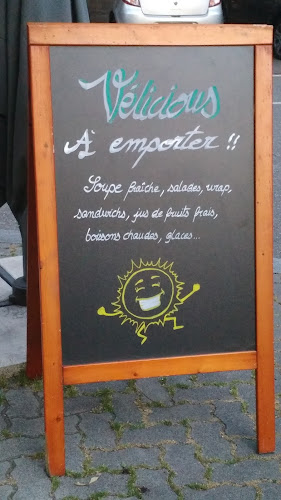 Vélicious
A emporter !!
Soupe fraîche, salades, wrap,
sandwichs, jus de fruits frais,
boissons chaudes, glaces...